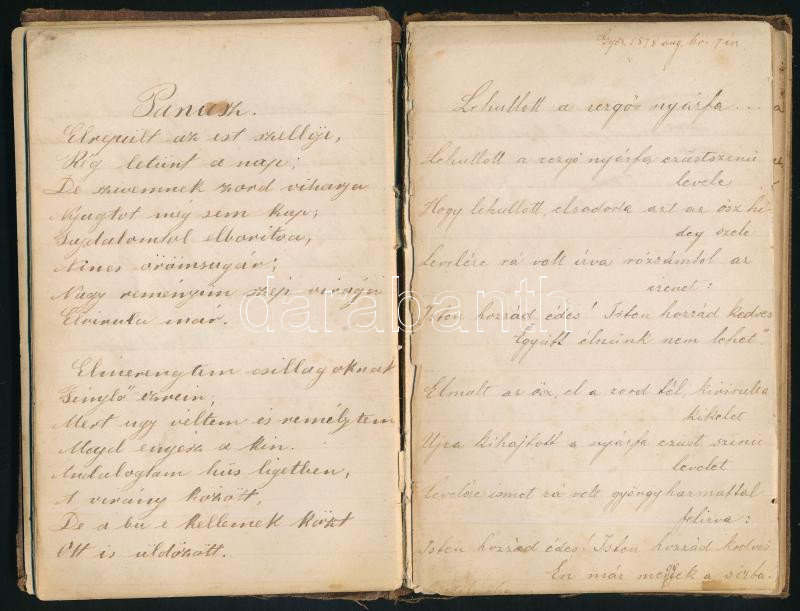 Panasz.
Elrepült az est szellője,
Rég letünt a nap;
De szivemnek zord viharja
Nyugtot még sem kap;
Fajdalomtol elboritva,
Nincs örömsugár;
Nagy reményim szép virága
Elvirula mar.
Elmerengtem csillagoknak
Fénylő ezrein,
Mert ugy véltem is reméltem
Majd enyesz a kin.
Andalogtam hüs ligetben,
A virány között,
De a bu e kellemek közt
Ott is üldözött.
Győr 1878 aug. hó 7 én
Lehullott a rezgő nyárfa ...
Lehullott a rezgő nyárfa ezüstszinü
levele
Hogy lehullott, elsodorta azt az ősz hi
deg szele
Levelére rá volt irva rózsámtol az
izenet:
Isten hozzád édes! Isten hozzád kedves
Együtt élnünk nem lehet"
Elmult az ősz, el a zord tél, kivirula
kikelet
Ujra kihajtott a nyárfa ezüst szinü
levelet
Levelére ismet rá volt gyöngyharmattal
felirva:
Isten hozzád édes! Isten hozzád kedves
Én már megyek a sirba.
darabanth